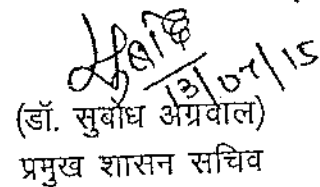 13/07/15
(डॉ. सुबोध अग्रवाल)
प्रमुख शासन सचिव